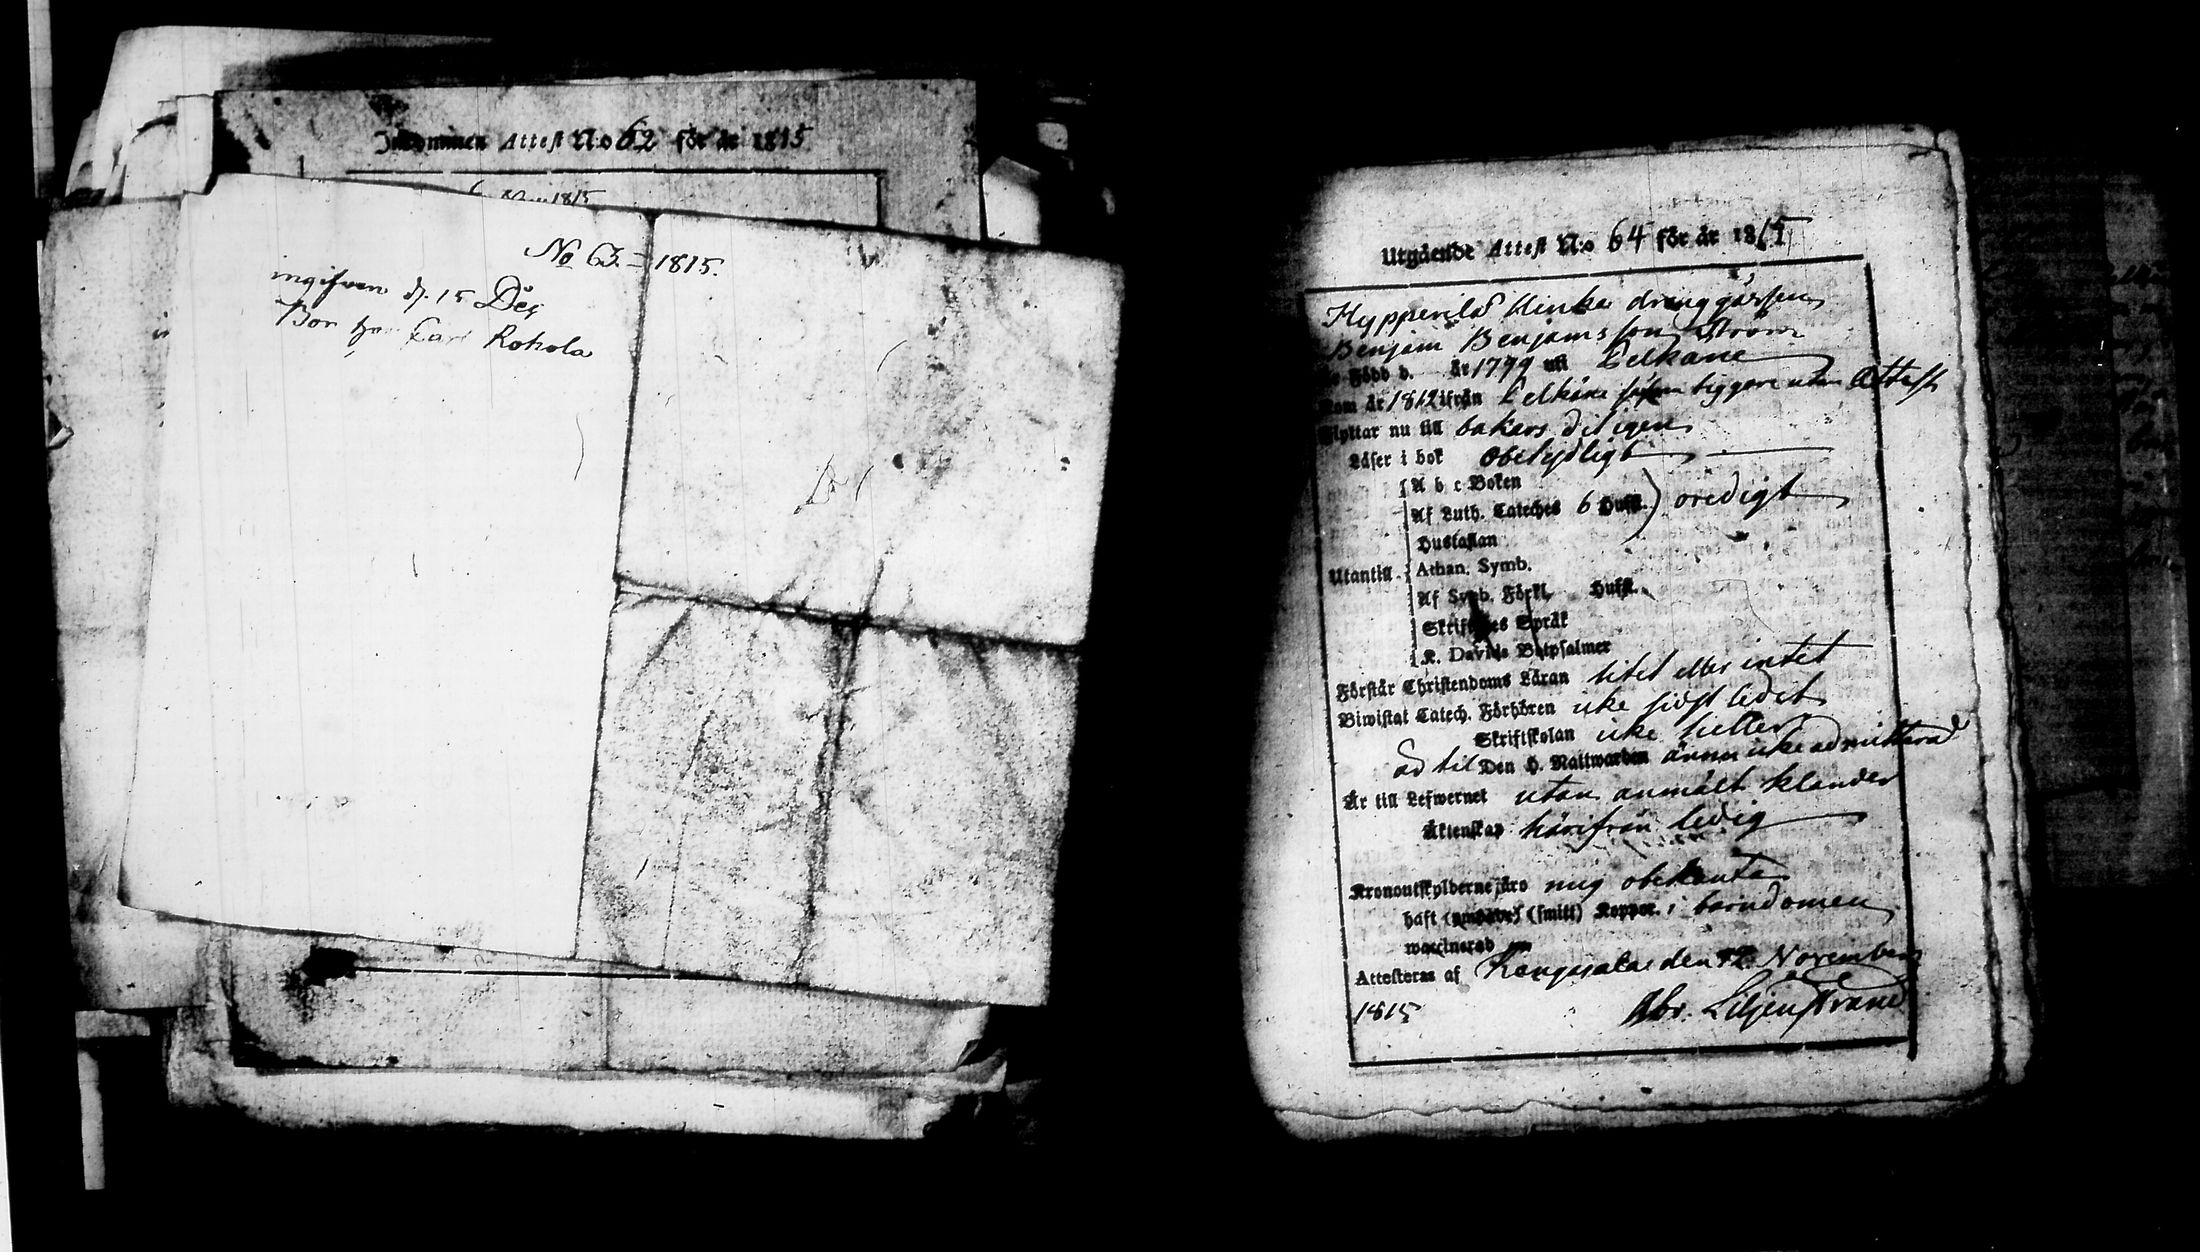 Inkommen Attest N:o 62 för år 1815
1815
No 63. = 1815.
ingifven d. 15 Dec
Bor Carl Rohola
Utgående Attest N:o 64 för år 1815
Hyppärilä Hinka drenggåssen
Benjam Benjamsson Ström
Född d. år 1799 uti Pelkäne
Kom år 1812 ifrån Pelkäne såsom tiggare utan Attest
Flyttar nu till bakars dit igen
Läser i bok obetydligt
A b c Boken
Af Luth. Cateches 6 Hufst. oredigt
Hustaflan
Utantill Athan. Symb.
Af Symb. Förkl. Hufst.
Skriftenes Språk
K. Davids Botpsalmer
Förstår Christendoms Läran litet eller intet
Biwistat Catech. Förhören icke sidst ledit
Skriftskolan icke heller
ad til Den H. Nattwarden ännu icke admitterad
Är till Lefwernet utan anmält klander
Äktenskap härifrån ledig
Kronoutskylderne äro mig obekanta
haft (smitt) Koppor. i barndomen
waccinerad
Attesteras af Kangasala den 12 November
1815 Abr. Liljenstrand